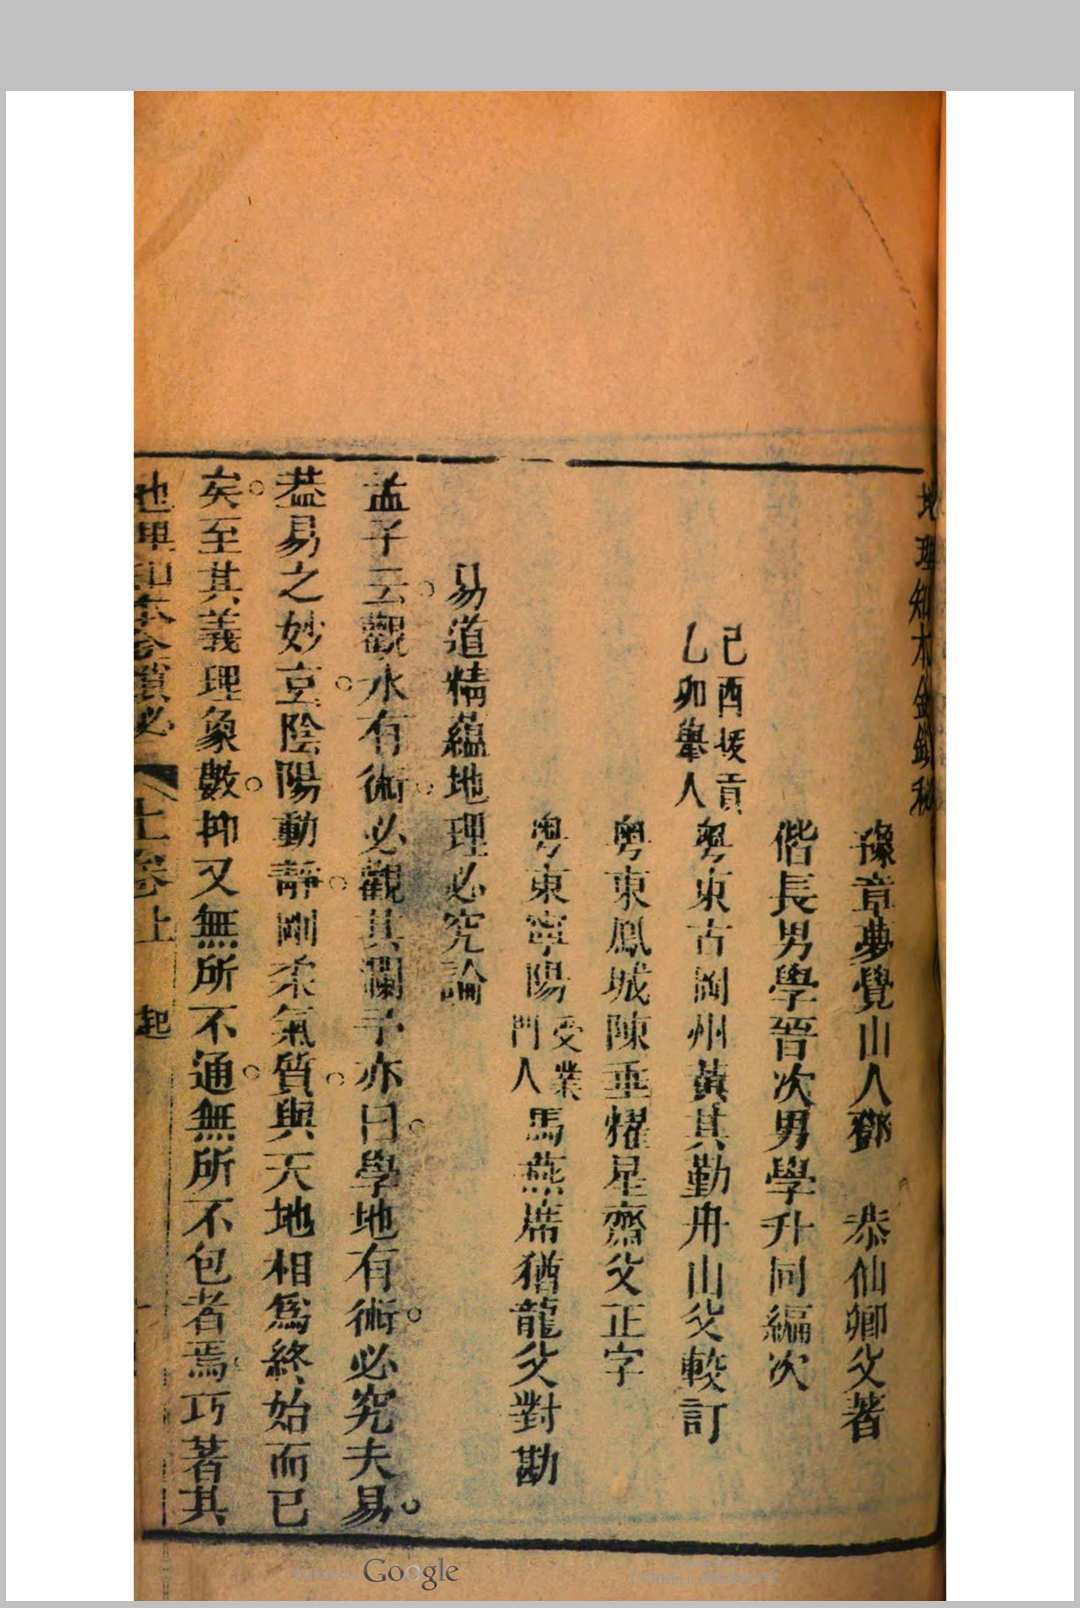 地理知本金鎖秘
豫章夢覺山人鄧 恭仙卿父著
偕長男學晉次男學升同編次
己酉拔貢
乙卯舉人
粵東古岡州黃其勤舟山父較訂
粵東鳳城陳垂燿星齋父正字
粵東寧陽受業門人馬燕席猶龍父對勘
易道精蘊地理必究論
孟子云觀水有術必觀其瀾予亦曰學地有術必究夫易
葢易之妙亶陰陽動靜剛柔氣質與天地相爲終始而已
矣至其義理象數抑又無所不通無所不包者焉巧著其
地理知本金鎖必 上卷上 起
Google